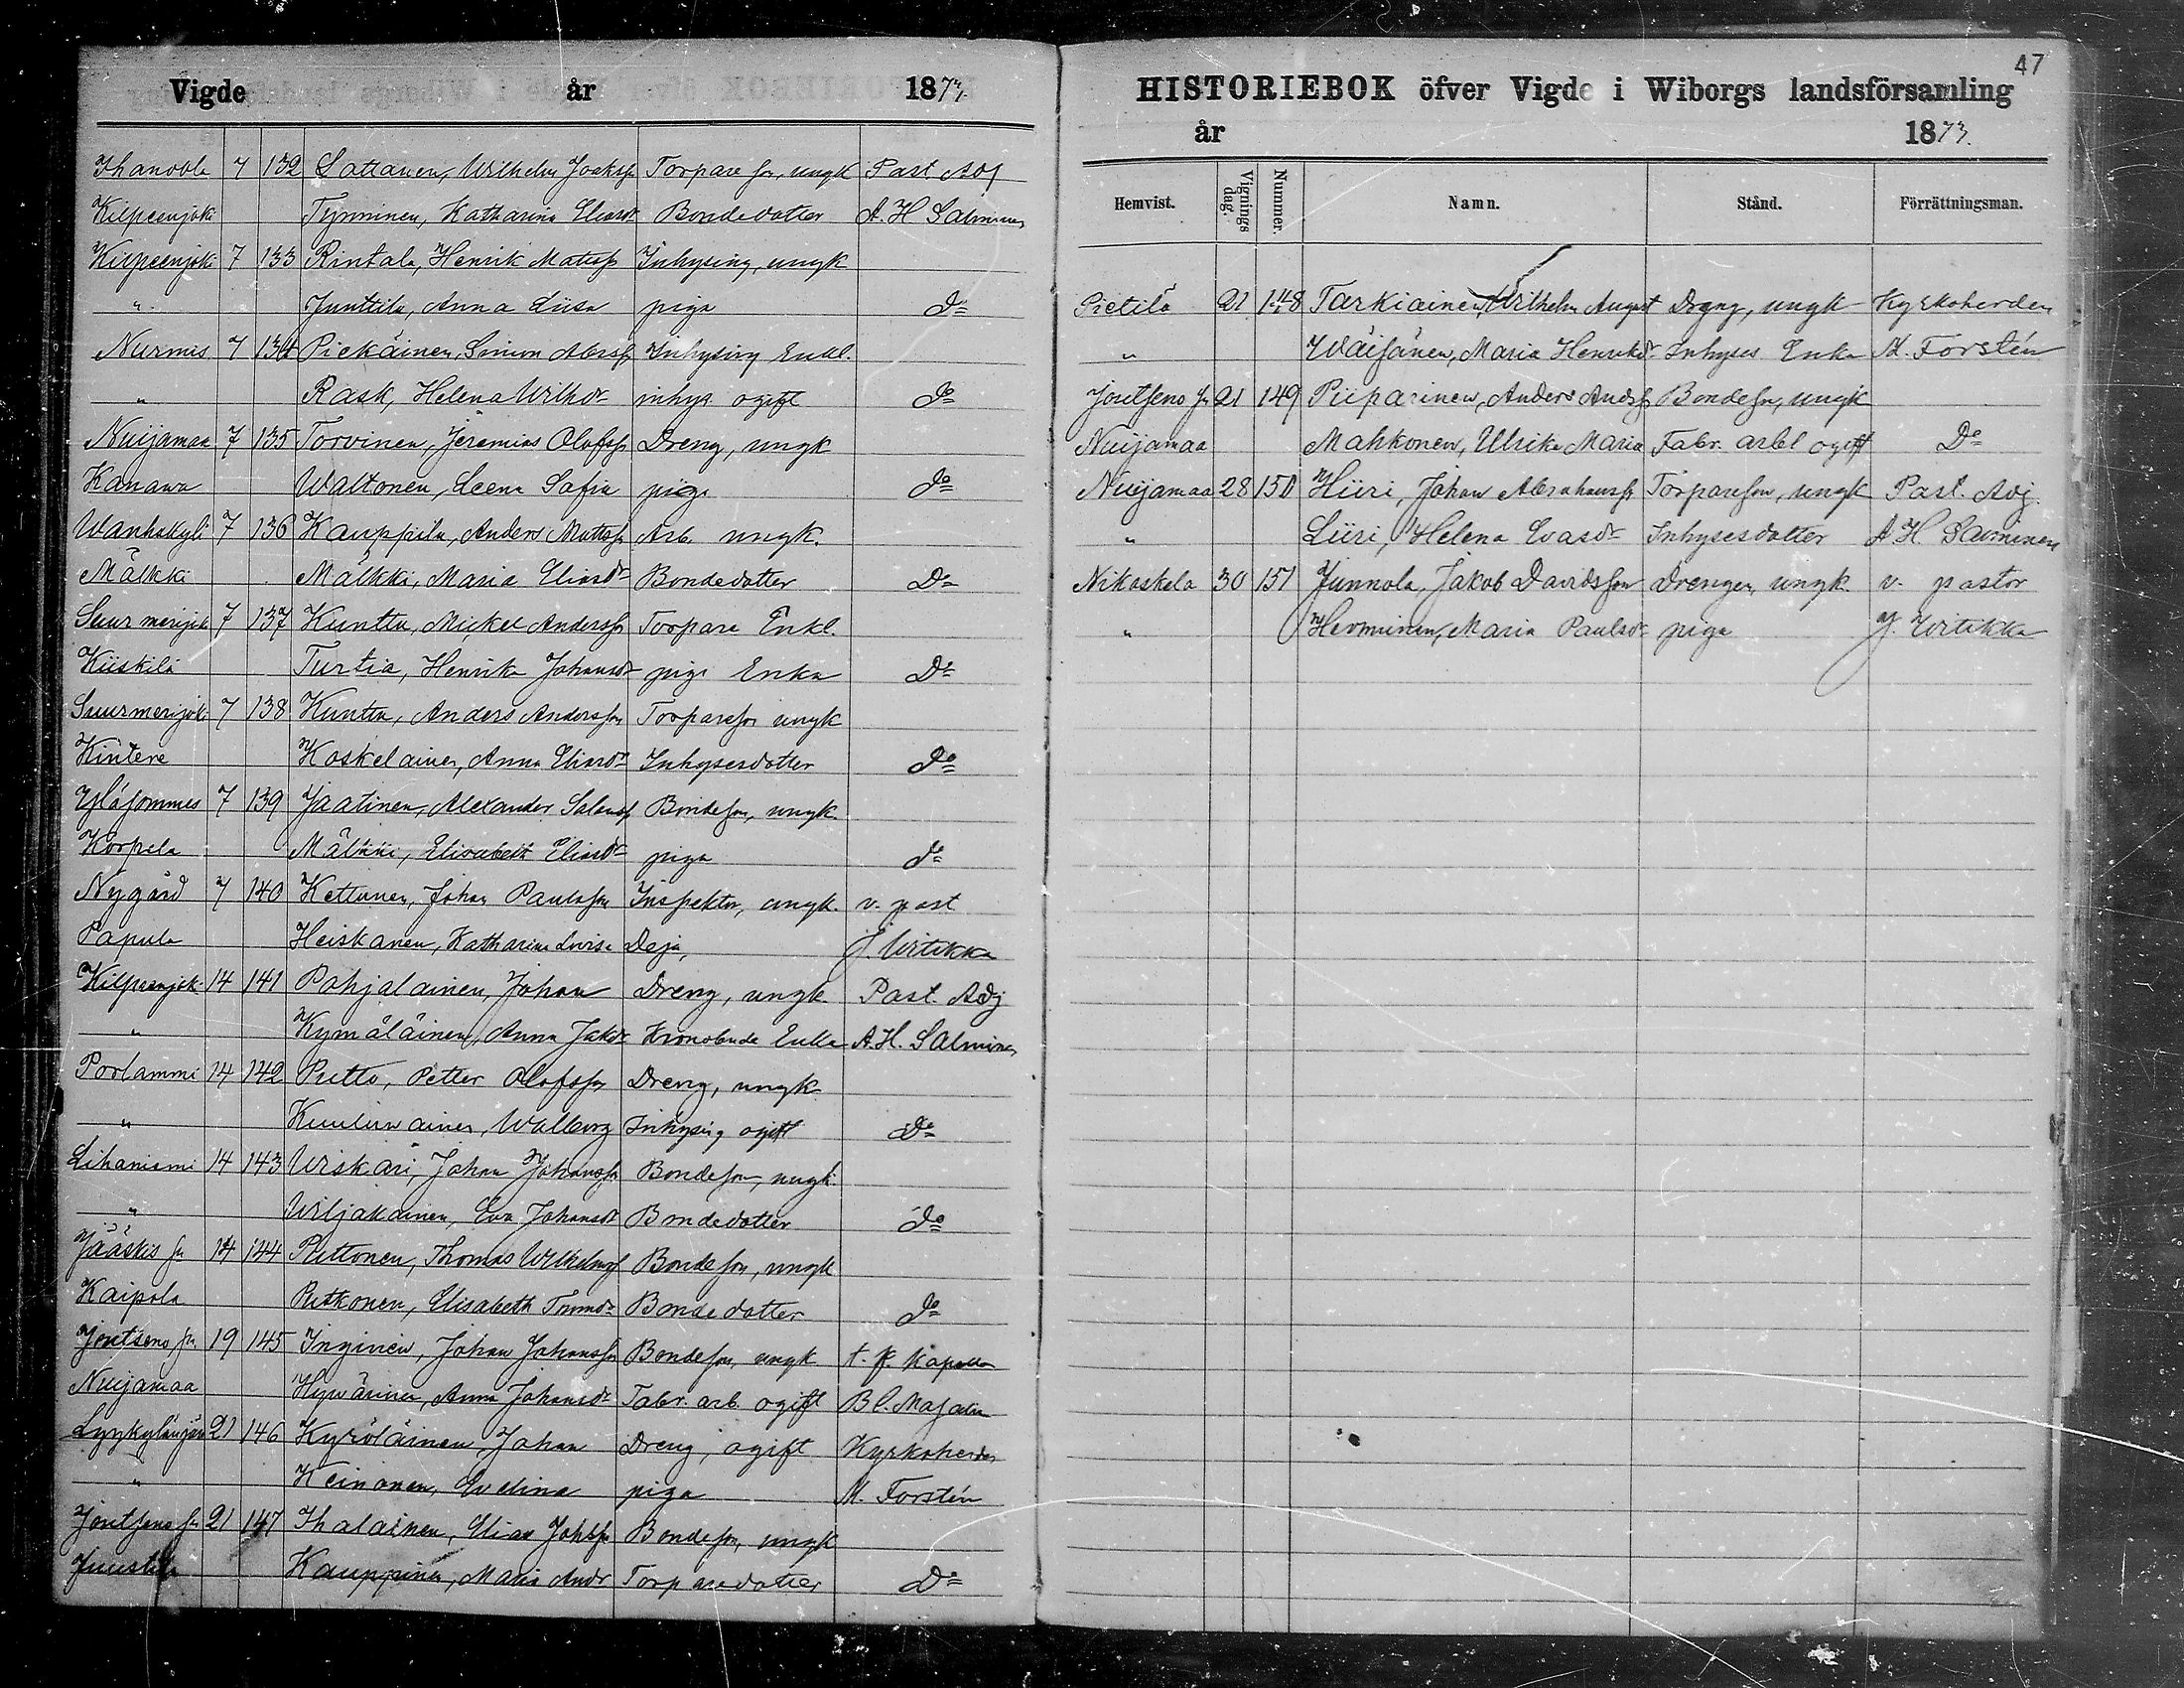 Vigde år 1873
Ihanobla 7 132 Sattanen, Wilhelm Joaksfn Torpare fn, ungk Past. Adj
Kilpeenjoki Tynninen, Katharina Eliasdr Bondedotter A. H Salminen
Kilpeenjoki 7 133 Rintala, Henrik Matsfn Inhysing, ungk
" Junttila, Anna Liisa piga Do
Nurmis 7 134 Piekäinen, Simon Abrsfn Inhysing Enkl.
" Rask, Helena Wilhdr inhys ogift Do
Nuijamaa 7 135 Torvinen, Jeremias Olofsfn Dreng, ungk
Kanawa Waltonen, Leena Sofia piga Do
Wanhakylä 7 136 Kauppila, Anders Mattsfn Arb. ungk.
Mälkki Mälkki, Maria Eliasdr Bondedotter Do
Suur merijoki 7 137 Kunttu, Mickel Andersfn Torpare Enkl.
Kiiskilä Turtia, Henrika Johansdr piga Enka Do
Suurmerijoki 7 138 Kunttu, Anders Andersfon Torparefon ungk
Kintere Koskelainen, Anna Eliasdr Inhysesdotter Do
Yläsommes 7 139 Jaatinen, Alexander Salomsfn Bondefon, ungk.
Korpela Mälkki, Elisabeth Eliasdr piga do
Nygård 7 140 Kettunen, Johan Paulsfon Inspektor, ungk. v. past
Papula Heiskanen, Katharina Lovisa Deja, J. Wirtikka
Kilpeenjok. 14 141 Pohjalainen, Johan Dreng, ungk Past. Adj
" Kymäläinen, Anna Jakdr Kronobonde Enka A. H. Salminen
Porlammi 14 142 Putto, Petter Olofsfn Dreng, ungk
" Kuulinainen, Walborg Inhysing ogift Do
Lihaniemi 14 143 Wiskari, Johan Johansfn Bondefon, ungk.
" Wiljakainen, Eva Johansdr Bondedotter do
Jääskis fn 14 144 Puttonen, Thomas Wilhelmsf Bondefon, ungk
Kaipola Ruskonen, Elisabeth Tommdr Bondedotter do
Joutseno fn 19 145 Inginen, Johan Johansfn Bondefon, ungk t. f. Kapellan
Nuijamaa Hyvärinen, Anna Johansdr Fabr. arb. ogift Bl. Majalin
Lyykyläinjärvi 21 146 Kyröläinen, Johan Dreng, ogift Kyrkoherden
" Keinonen, Evelina piga M. Forstén
Joutseno fn 21 147 Ihalainen, Elias Johsfn Bondefon, ungk
Juustila Kauppinen, Maria Andr Torparedotter Do
47
HISTORIEBOK öfver Vigde i Wiborgs landsförsamling
år 1873.
Hemvist. Vignings dag. Nummer. Namn. Stånd. Förrättningsman.
Pietilä 21 148 Tarkiainen, Wilhelm August Dreng, ungk Kyrkoherden
" Wäisänen, Maria Henriksdr Inhyses Enka M. Forstén
Joutseno fn 21 149 Piiparinen, Anders Andsfn Bondefon, ungk
Nuijamaa Mahkonen, Ulrika Maria Fabr. arbt ogift Do
Nuijamaa 28 150 Hiiri, Johan Abrahamsfn Torparefon, ungk Past. Adj.
" Liiri, Helena Evasdr Inhysesdotter A. H. Salminen
Nikoskela 30 151 Junnola, Jakob Davidsfon Drengen, ungk. v. pastor
" Hevminen, Maria Paulsdr piga J. Wirtikka